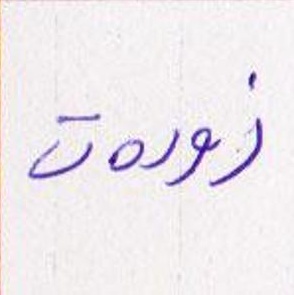 زوردەت